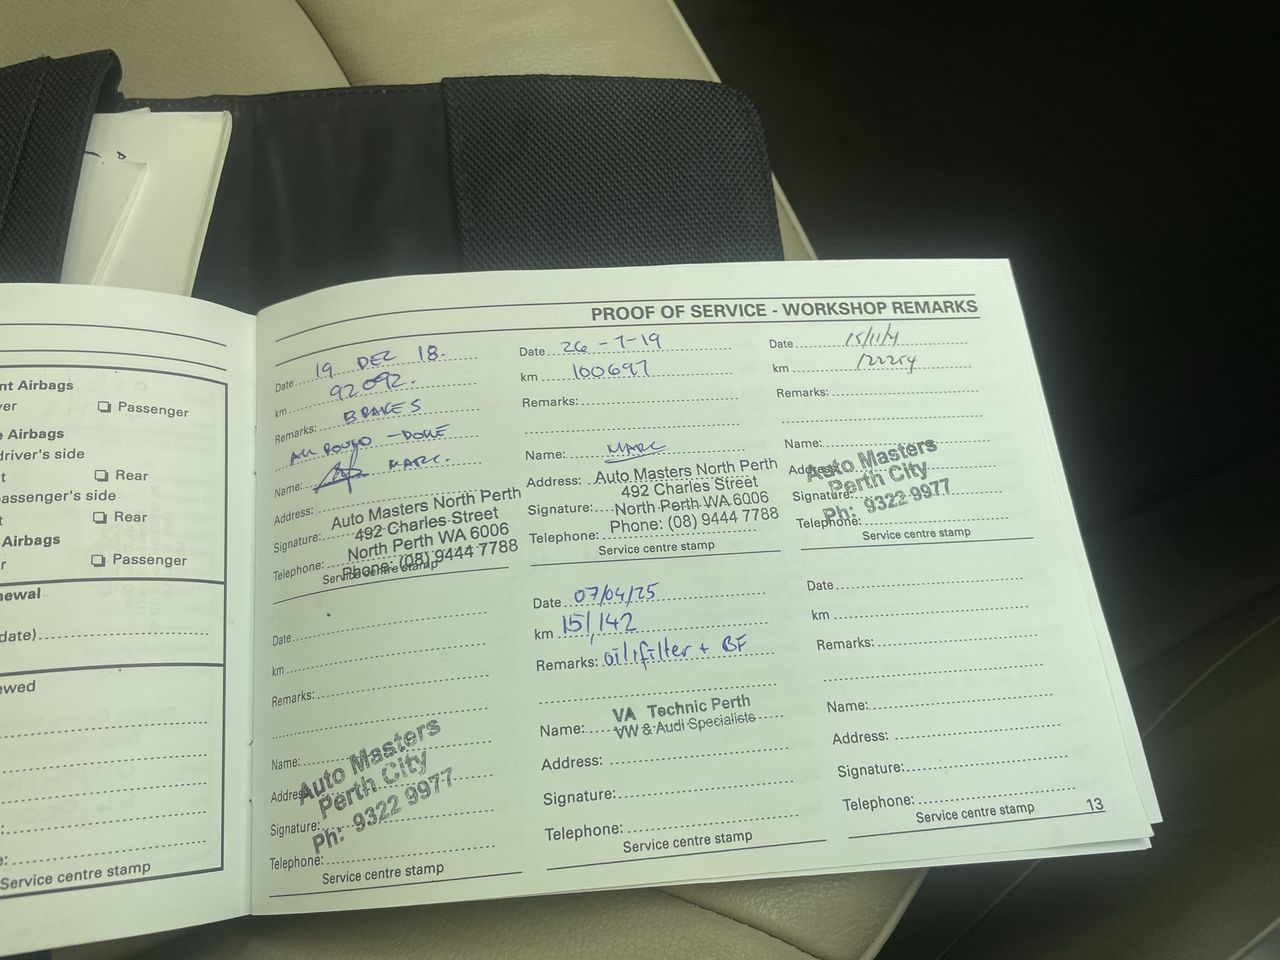 nt Airbags
ver
❏ Passenger
e Airbags
driver's side
t
❏ Rear
passenger's side
t
❏ Rear
Airbags
r
❏ Passenger
newal
date)
ewed
:
e:
Service centre stamp
PROOF OF SERVICE - WORKSHOP REMARKS
Date 19 DEC 18.
km 92092.
Remarks: BRAKES
ALL ROUND - DONE
Name: MARC.
Address:
Signature:
Telephone:
Auto Masters North Perth
492 Charles Street
North Perth WA 6006
Phone: (08) 9444 7788
Service centre stamp
Date 26-7-19
km 100697
Remarks:
Name: MARC
Address:
Signature:
Telephone:
Auto Masters North Perth
492 Charles Street
North Perth WA 6006
Phone: (08) 9444 7788
Service centre stamp
Date
km
Remarks:
Name:
Address:
Signature:
Telephone:
Auto Masters
Perth City
Ph: 9322 9977
Service centre stamp
Date
km
Remarks:
Name:
Address:
Signature:
Telephone:
Auto Masters
Perth City
Ph: 9322 9977
Service centre stamp
Date 07/04/25
km 151,142
Remarks: oil, filter + BF
Name:
VA Technic Perth
VW & Audi Specialists
Address:
Signature:
Telephone:
Service centre stamp
Date
km
Remarks:
Name:
Address:
Signature:
Telephone:
Service centre stamp
13